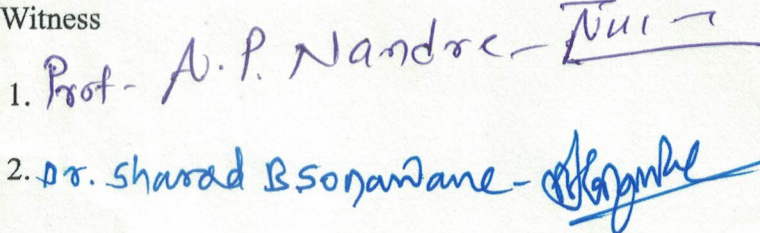 Witness
1. Prof- N. P. Nandre-
2. Dr. Sharad B Sonawane-